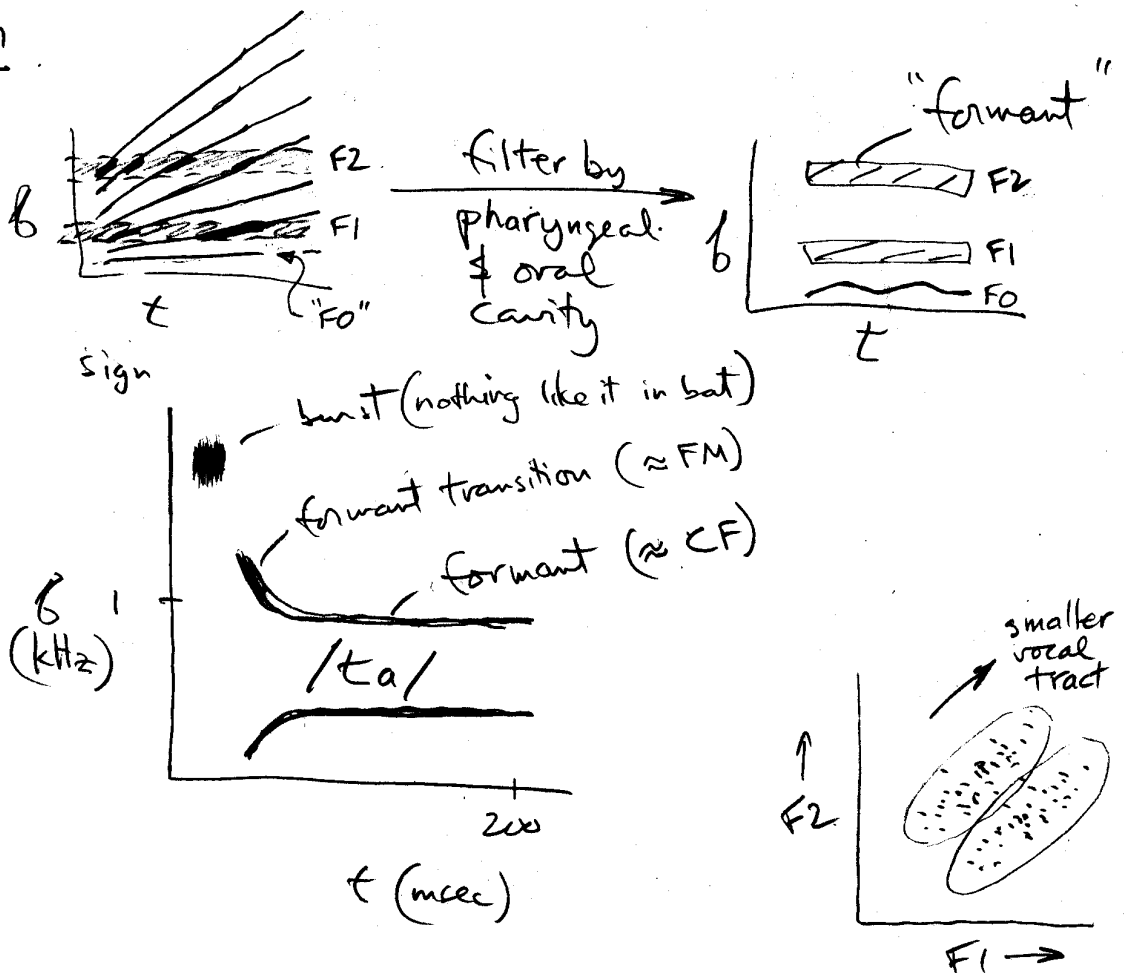 F2
F1
f
t
"F0"
filter by
pharyngeal
& oral
cavity
"formant"
F2
F1
F0
f
t
sign
burst (nothing like it in bat)
formant transition (≈ FM)
formant (≈ CF)
f
(kHz)
1
/ta/
200
t (msec)
smaller
vocal
tract
↑
F2
F1 →